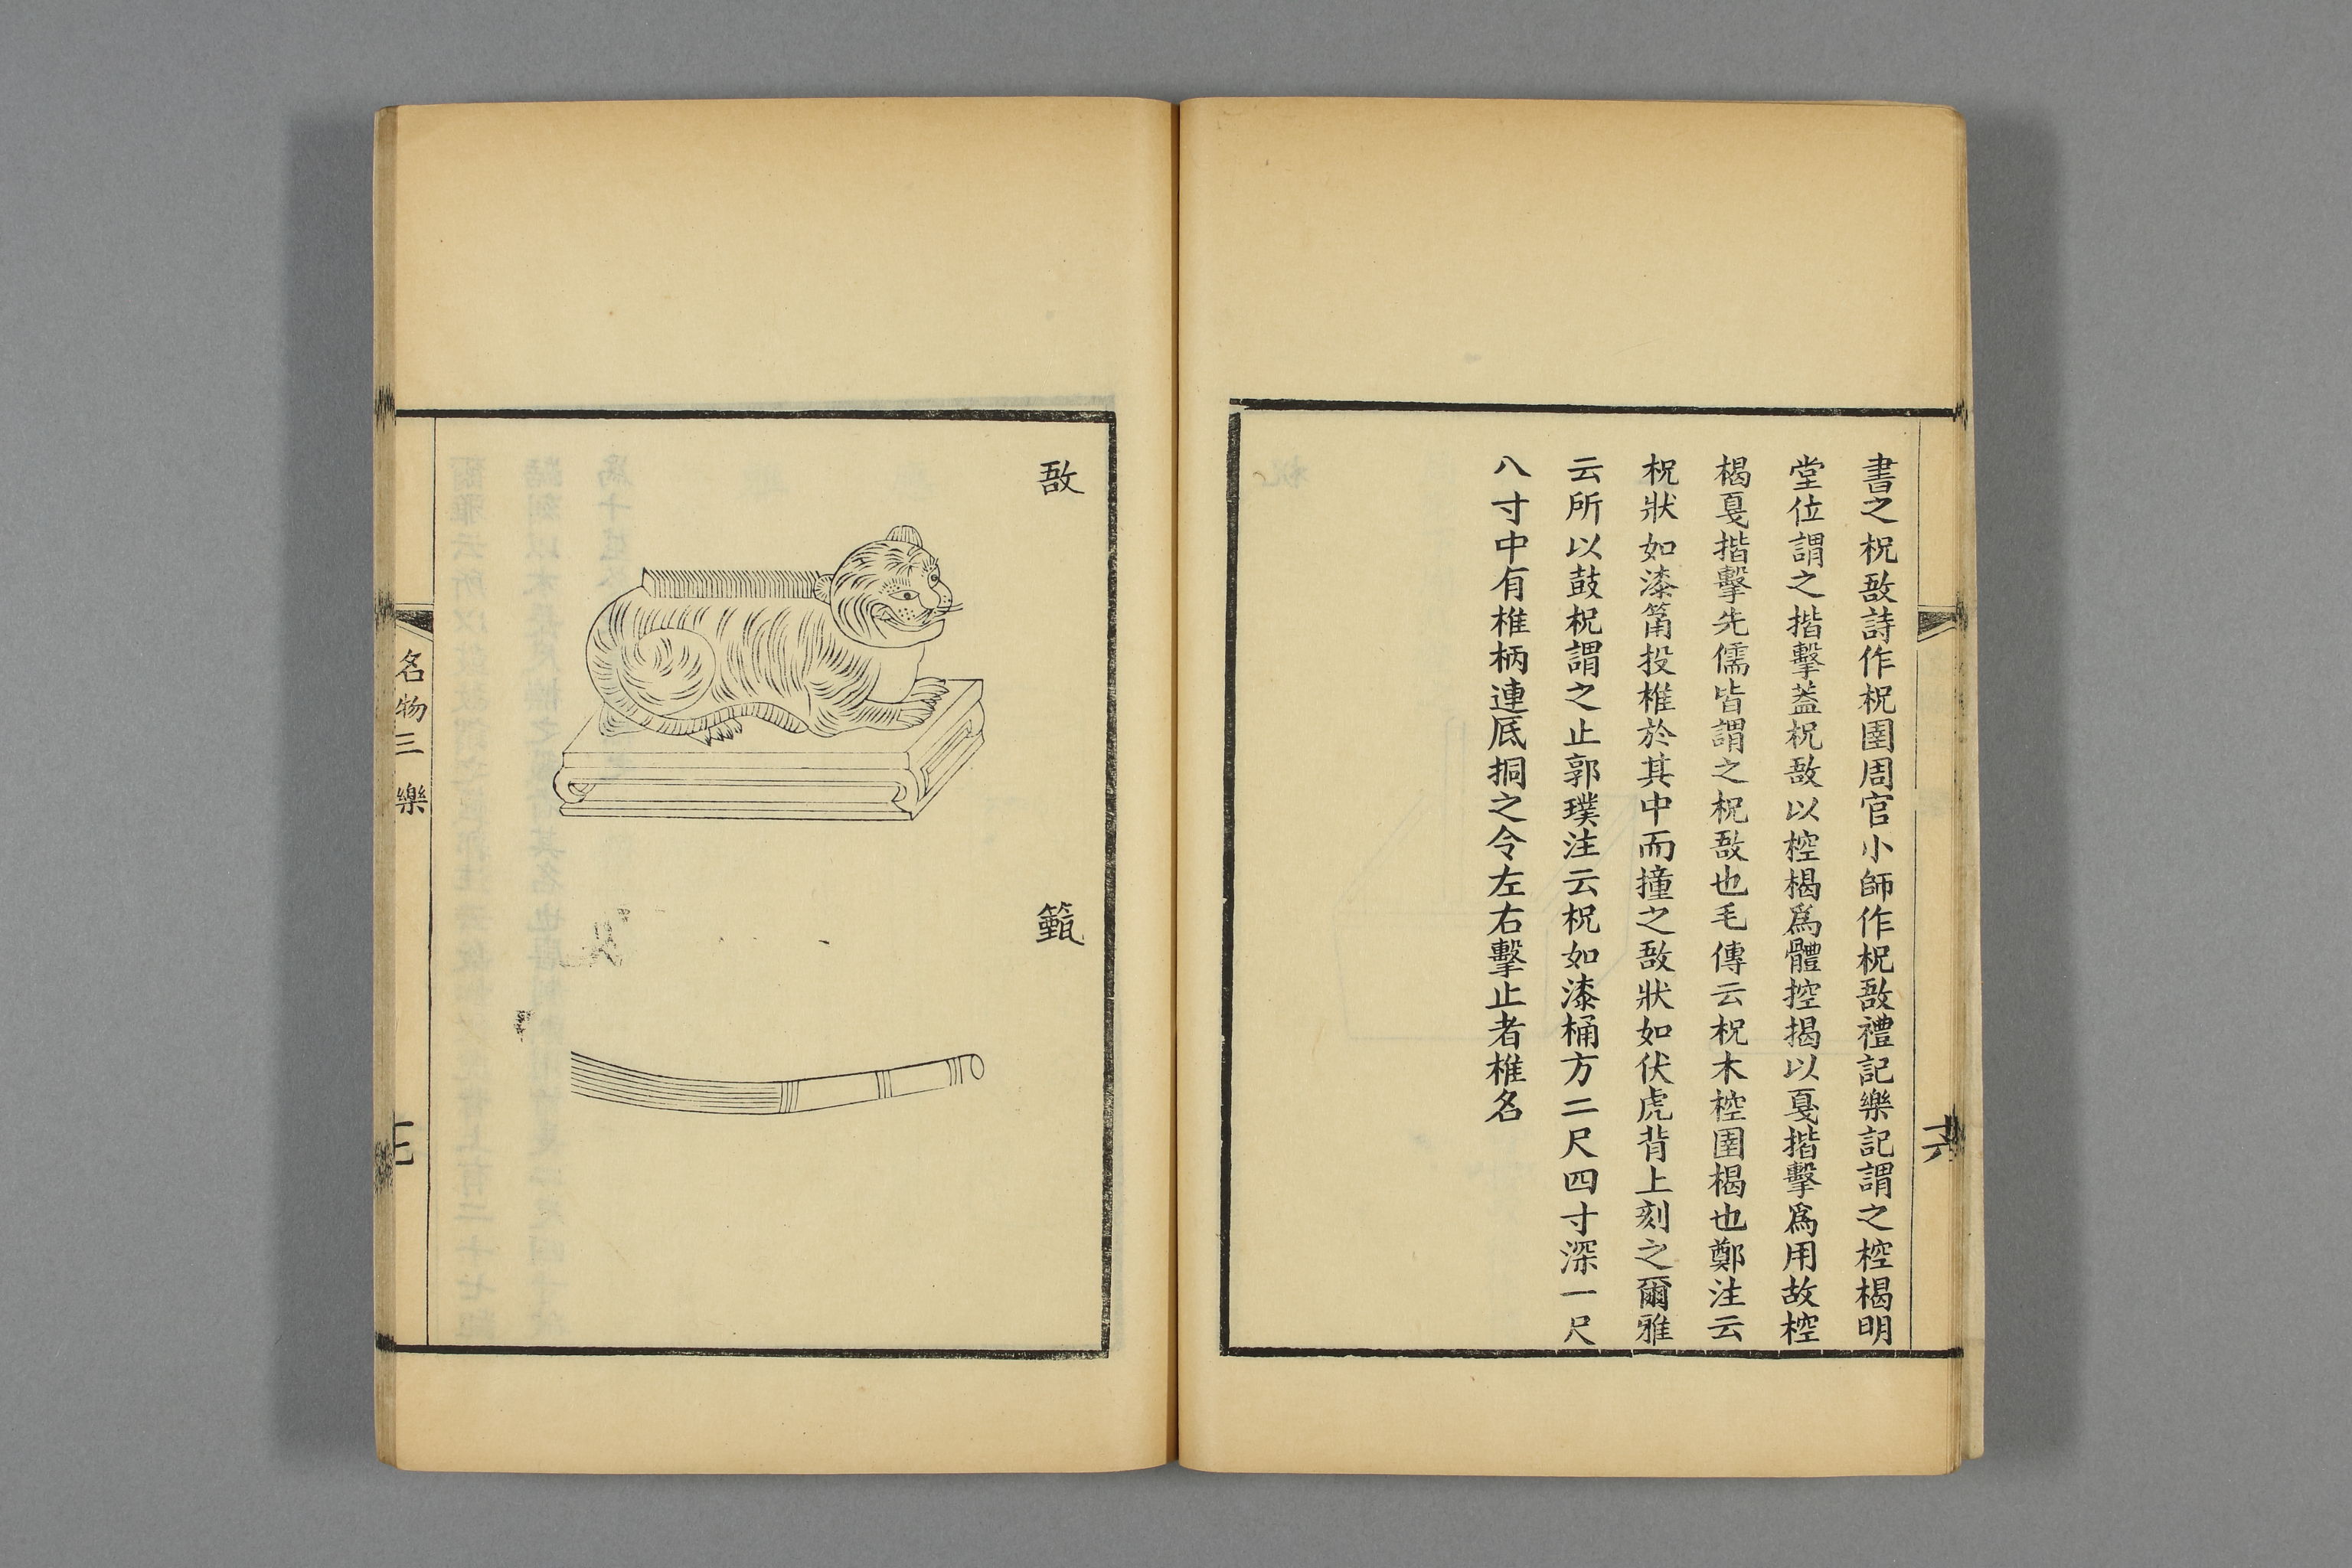 書之柷敔詩作柷圉周官小師作柷敔禮記樂記謂之椌楬明
堂位謂之揩擊蓋柷敔以椌楬爲體控揭以戛揩擊爲用故椌
楬戛揩擊先儒皆謂之柷敔也毛傳云柷木椌圉楬也鄭注云
柷狀如漆筩投椎於其中而撞之敔狀如伏虎背上刻之爾雅
云所以鼓柷謂之止郭璞注云柷如漆桶方二尺四寸深一尺
八寸中有椎柄連底挏之令左右擊止者椎名
六
敔
籈
名物三 樂